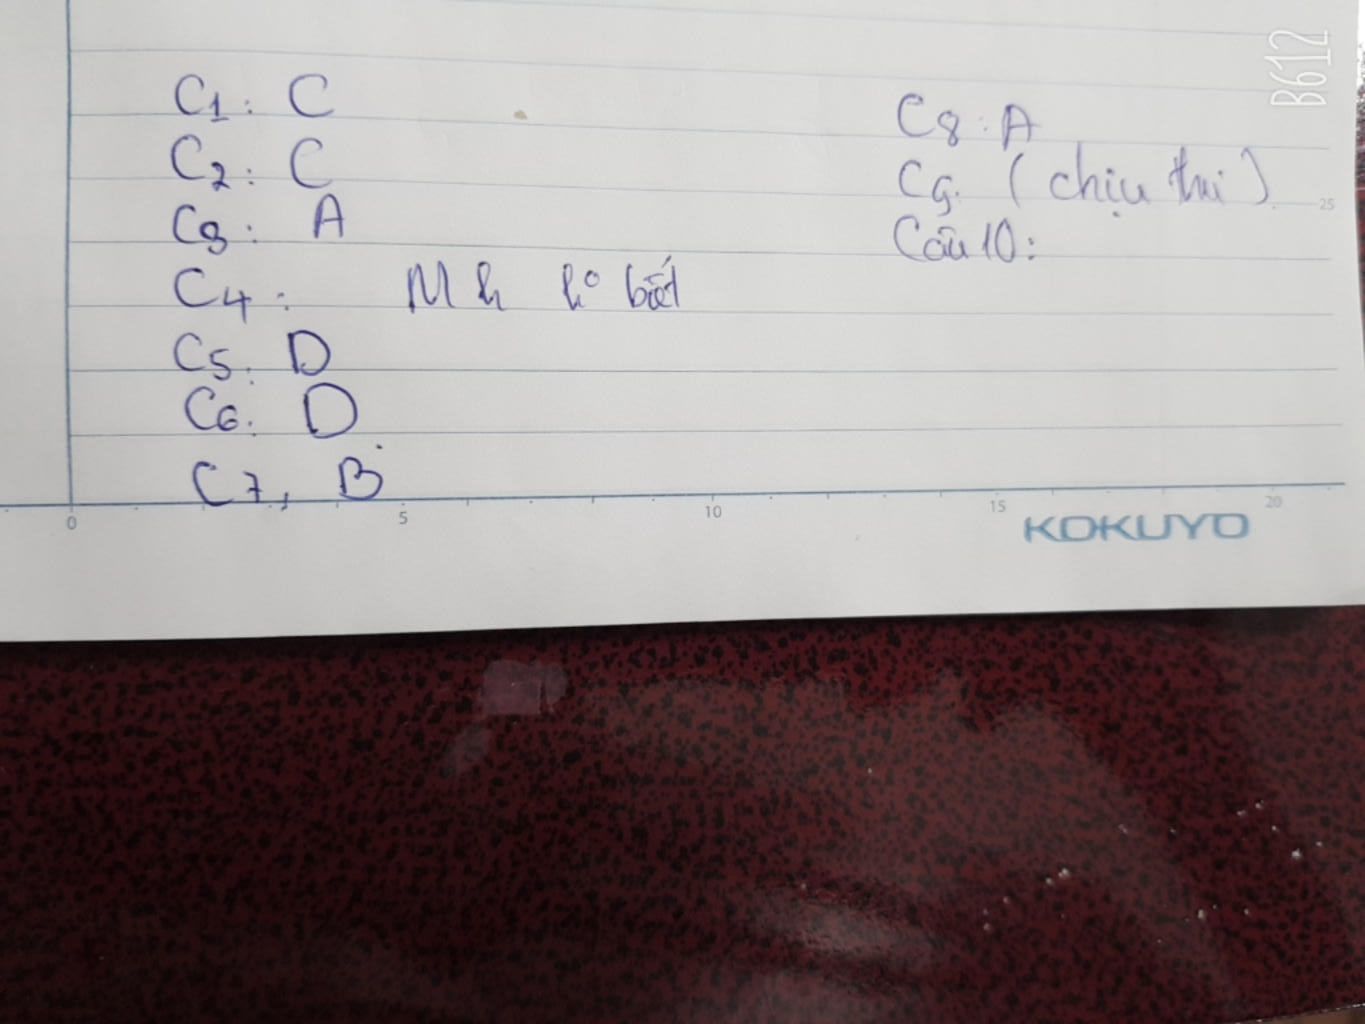 C1: C
C2: C
C3: A
C4: M k ko biết
C5: D
C6: D
C7, B
C8: A
C9. (chịu thui)
Câu 10:
0 5 10 15 20
25
KOKUYO
B612